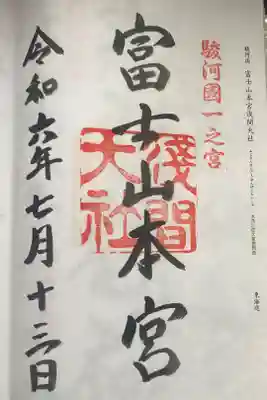 駿河国 富士山本宮浅間大社
東海道
駿河國一之宮
富士山本宮
淺間
大社
令和六年七月十三日